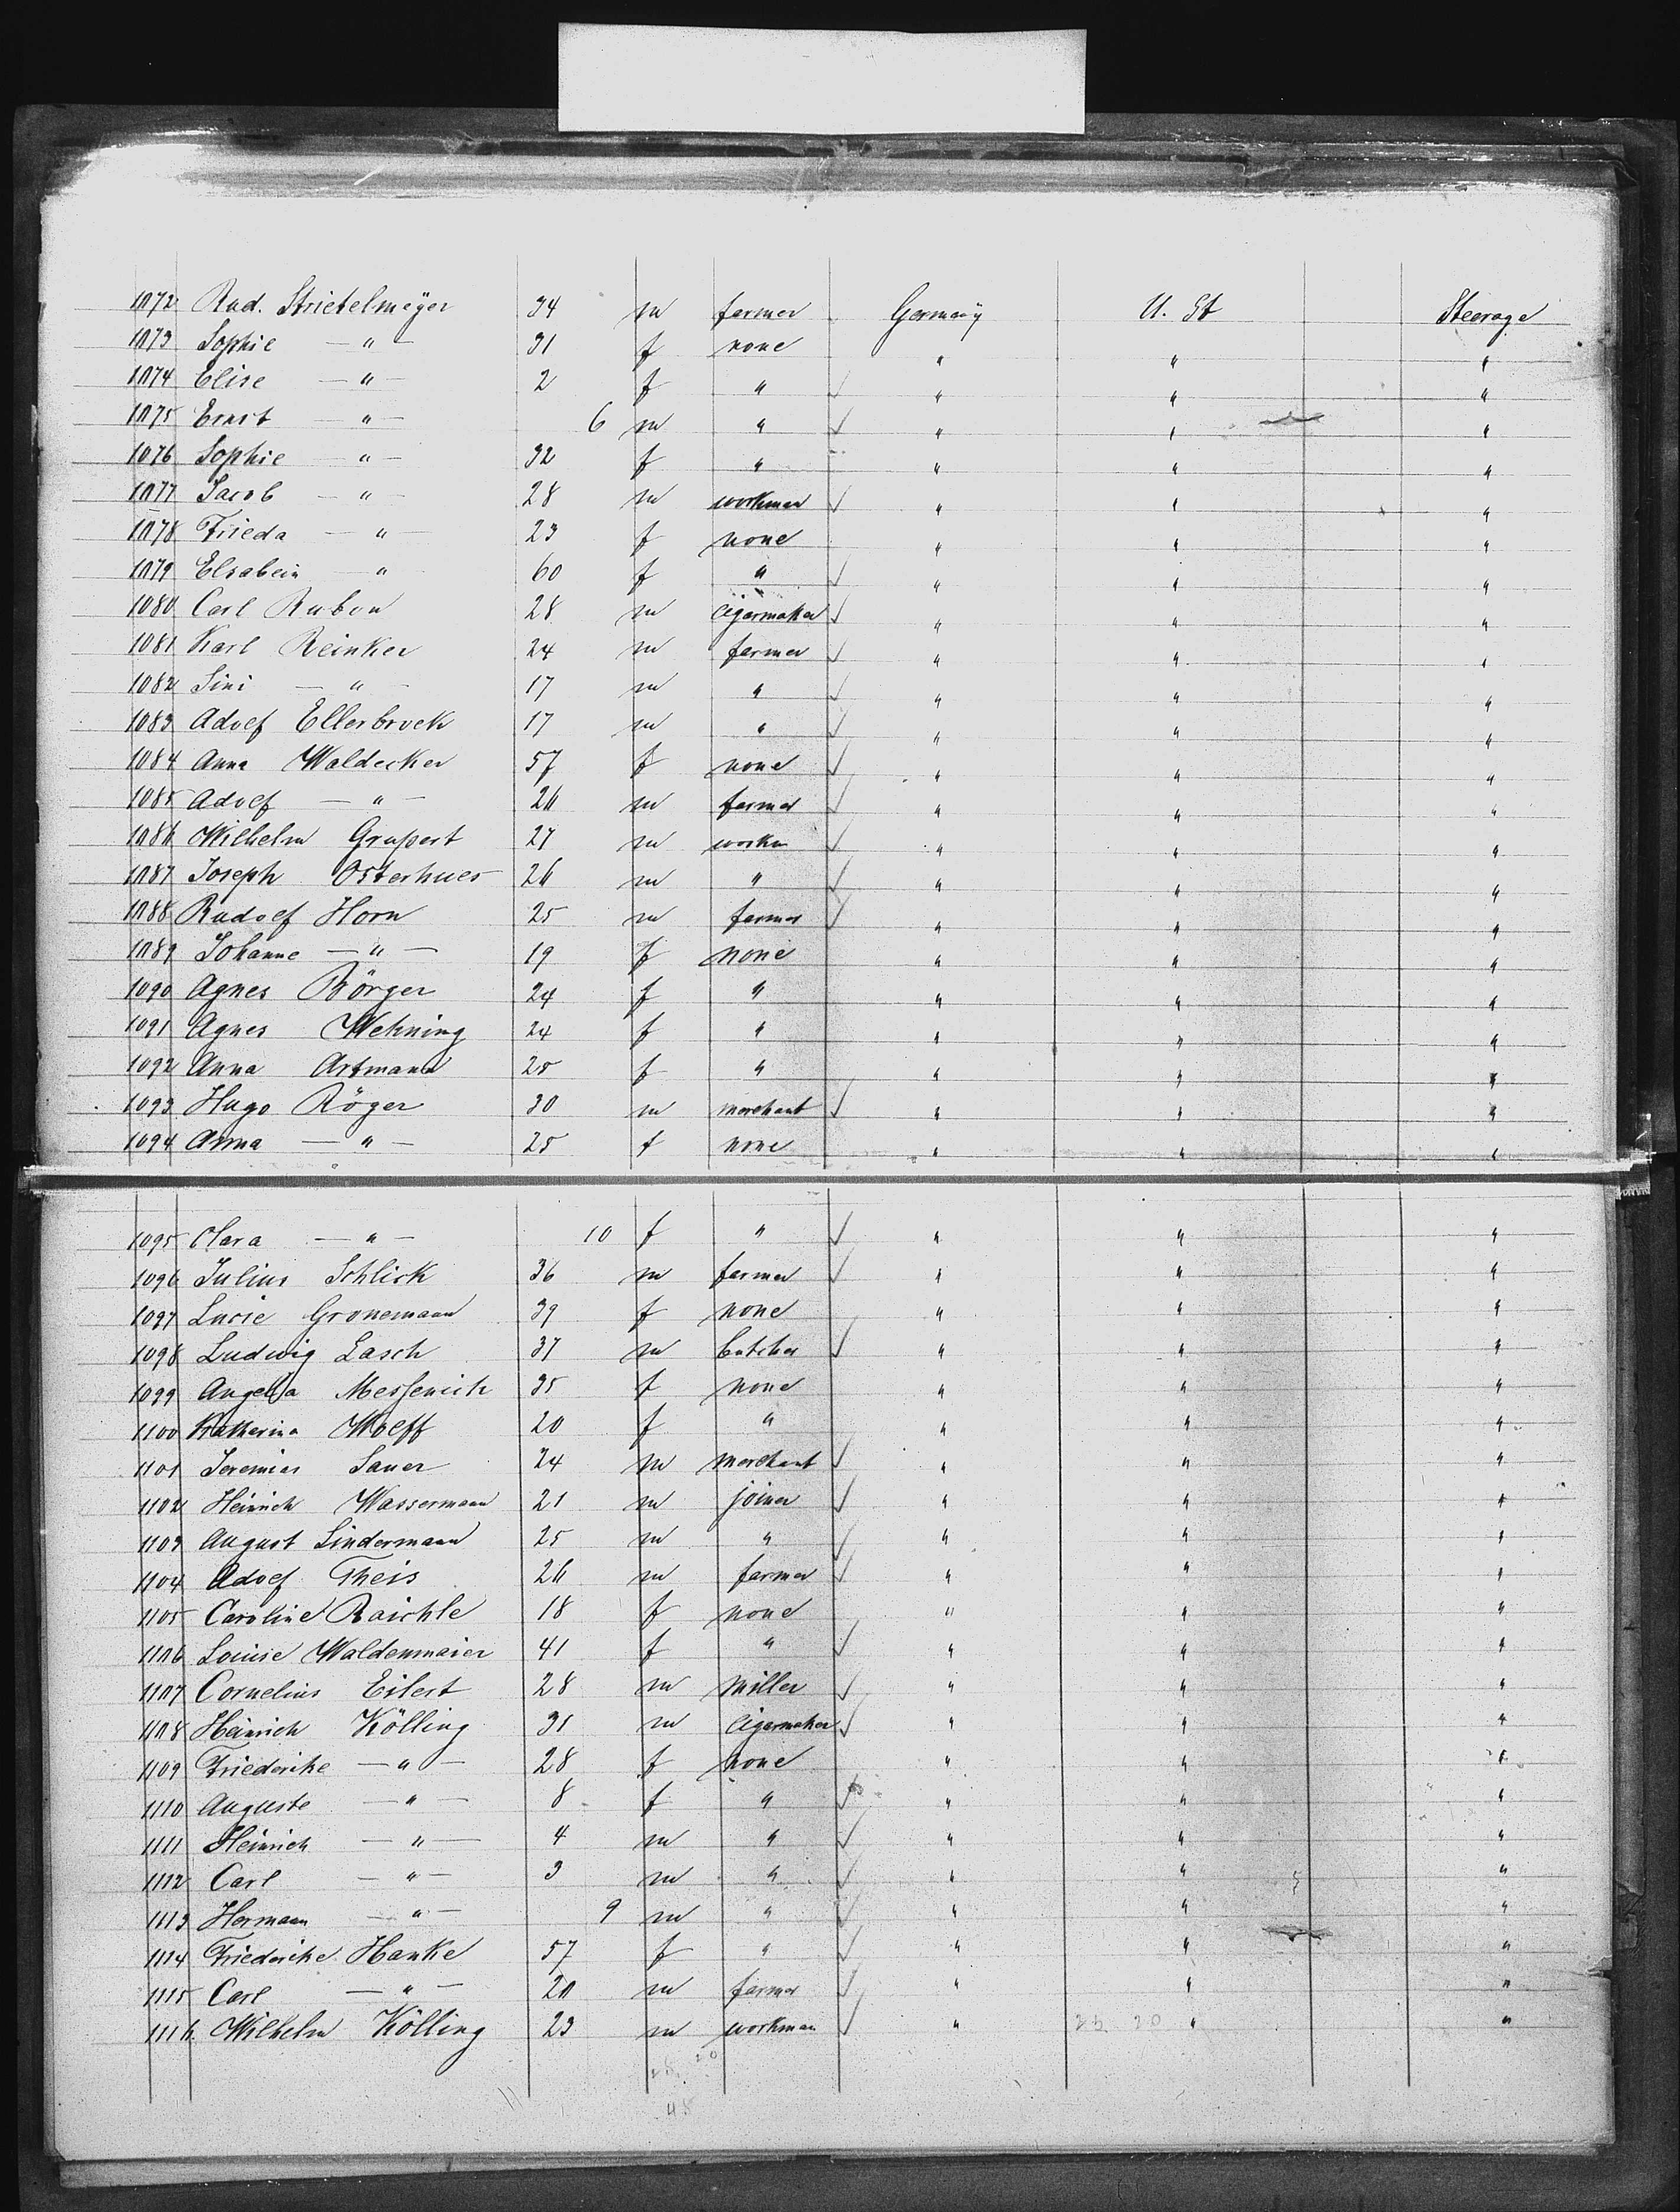 1072 Rud. Strietelmeÿer 34 m farmer Germanÿ U. St Steerage
1073 Sophie — " — 31 f none " " "
1074 Elise — " — 2 f " " " "
1075 Ernst — " — 6 m " " " "
1076 Sophie — " — 32 f " " " "
1077 Jacob — " — 28 m workman " " "
1078 Frieda — " 23 f none " " "
1079 Elsabein — " 60 f " " " "
1080 Carl Rubon 28 m cigarmaker " " "
1081 Karl Reinker 24 m farmer " " "
1082 Lini — " — 17 m " " " "
1083 Adolf Ellerbrock 17 m " " " "
1084 Anna Waldecker 57 f none " " "
1085 Adolf — " — 26 m farmer " " "
1086 Wilhelm Grupert 27 m workm " " "
1087 Joseph Osterhues 26 m " " " "
1088 Rudolf Horn 25 m farmer " " "
1089 Johanne — " — 19 f none " " "
1090 Agnes Börger 24 f " " " "
1091 Agnes Wehning 24 f " " " "
1092 Anna Artmann 25 f " " " "
1093 Hugo Röger 30 m merchant " " "
1094 Anna — " — 25 f none " " "
1095 Clara — " — 10 f " " " "
1096 Julius Schlick 36 m farmer " " "
1097 Lucie Gronemann 39 f none " " "
1098 Ludwig Lasch 37 m butcher " " "
1099 Angela 35 f none " " "
1100 Katherina Wolff 20 f " " " "
1101 Jeremias Sauer 24 m merchant " " "
1102 Heinrich Wassermann 21 m joiner " " "
1103 August Lindermann 25 m " " " "
1104 Adolf Theis 26 m farmer " " "
1105 Caroline Raichle 18 f none " " "
1106 Louise Waldenmaier 41 f " " " "
1107 Cornelius Eilert 28 m miller " " "
1108 Heinrich Kölling 31 m cigarmaker " " "
1109 Friederike — " — 28 f none " " "
1110 Auguste — " — 8 f " " " "
1111 Heinrich — " — 4 m " " " "
1112 Carl — " — 3 m " " " "
1113 Hermann — " — 9 m " " " "
1114 Friederike Hanke 57 f " " " "
1115 Carl — " — 20 m farmer " " "
1116 Wilhelm Kölling 23 m workman " 25 20 " "
25 20
45